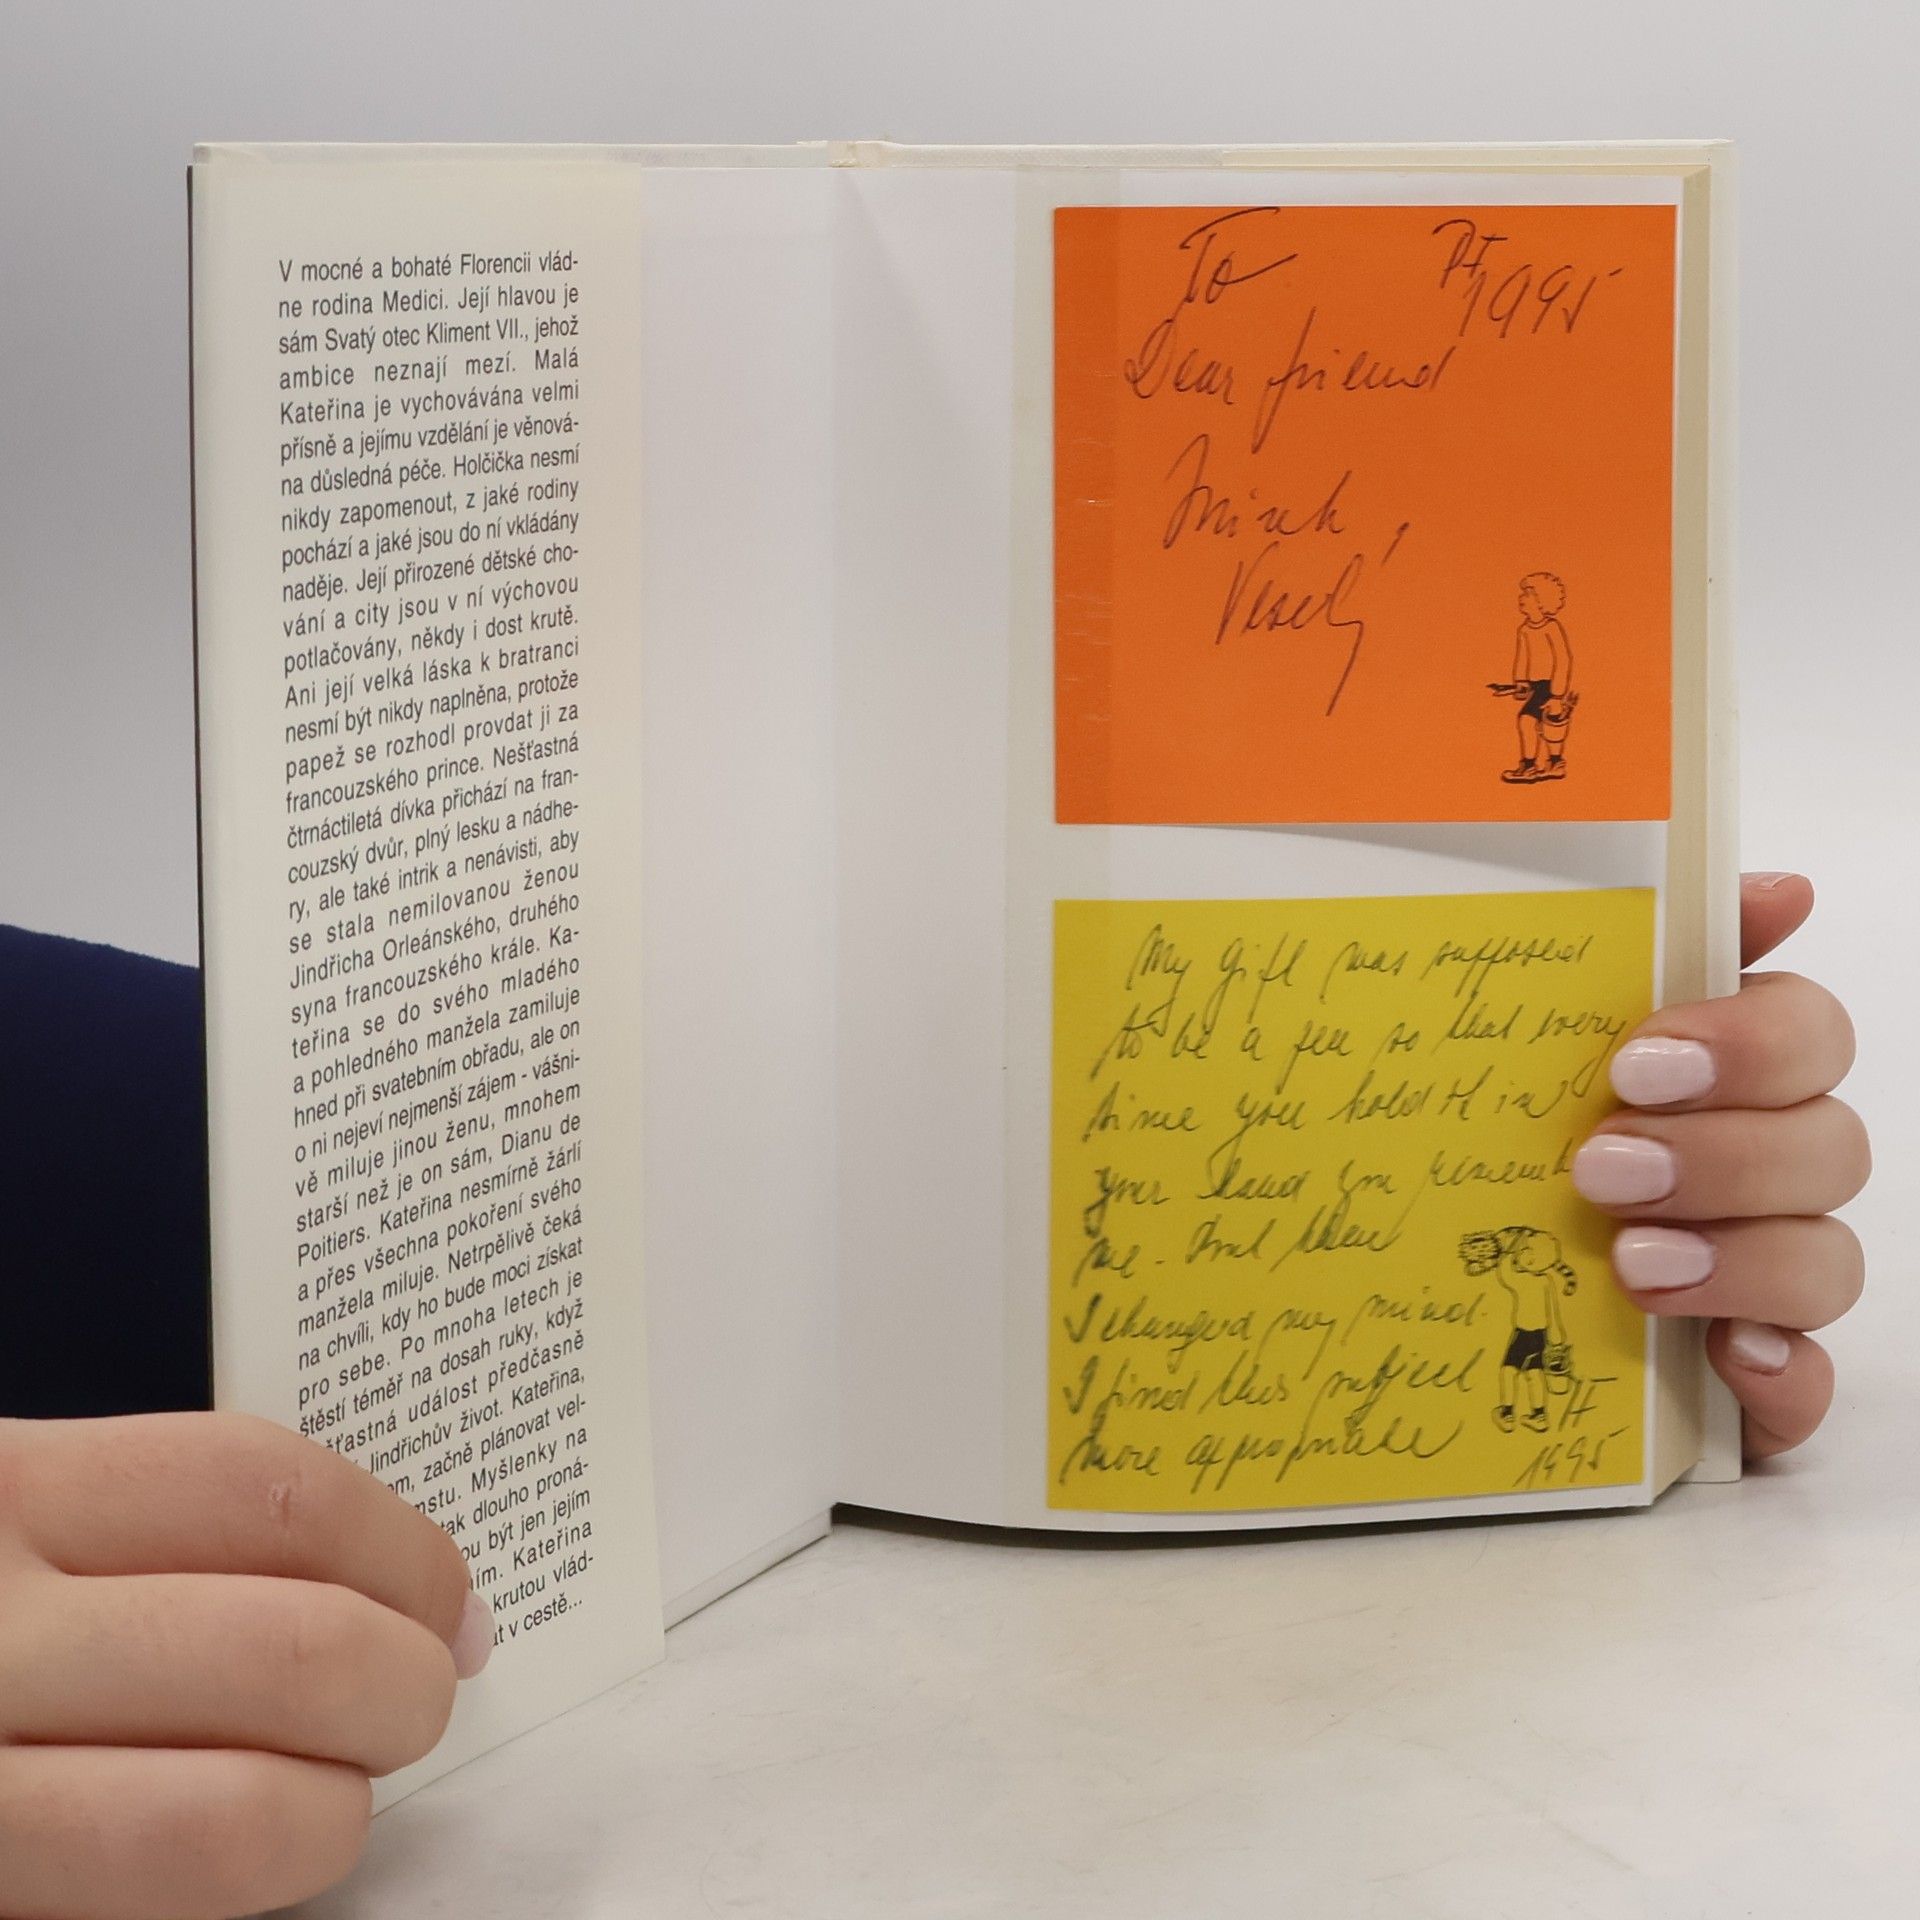 V mocné a bohaté Florencii vlád-
ne rodina Medici. Její hlavou je
sám Svatý otec Kliment VII., jehož
ambice neznají mezí. Malá
Kateřina je vychovávána velmi
přísně a jejímu vzdělání je věnová-
na důsledná péče. Holčička nesmí
nikdy zapomenout, z jaké rodiny
pochází a jaké jsou do ní vkládány
naděje. Její přirozené dětské cho-
vání a city jsou v ní výchovou
potlačovány, někdy i dost krutě.
Ani její velká láska k bratranci
nesmí být nikdy naplněna, protože
papež se rozhodl provdat ji za
francouzského prince. Nešťastná
čtrnáctiletá dívka přichází na fran-
couzský dvůr, plný lesku a nádhe-
ry, ale také intrik a nenávisti, aby
se stala nemilovanou ženou
Jindřicha Orleánského, druhého
syna francouzského krále. Ka-
teřina se do svého mladého
a pohledného manžela zamiluje
hned při svatebním obřadu, ale on
o ni nejeví nejmenší zájem - vášni-
vě miluje jinou ženu, mnohem
starší než je on sám, Dianu de
Poitiers. Kateřina nesmírně žárlí
a přes všechna pokoření svého
manžela miluje. Netrpělivě čeká
na chvíli, kdy ho bude moci získat
pro sebe. Po mnoha letech je
štěstí téměř na dosah ruky, když
šťastná událost předčasně
Jindřichův život. Kateřina,
em, začně plánovat vel-
mstu. Myšlenky na
tak dlouho proná-
ou být jen jejím
ím. Kateřina
krutou vlád-
at v cestě...
To PF
1995
Dear friend
Mirek
Veselý
My gift was supposed
to be a pen so that every
time you hold it in
your hand you rememb
me. But then
I changed my mind.
I find this subject
more appropriate
PF
1995